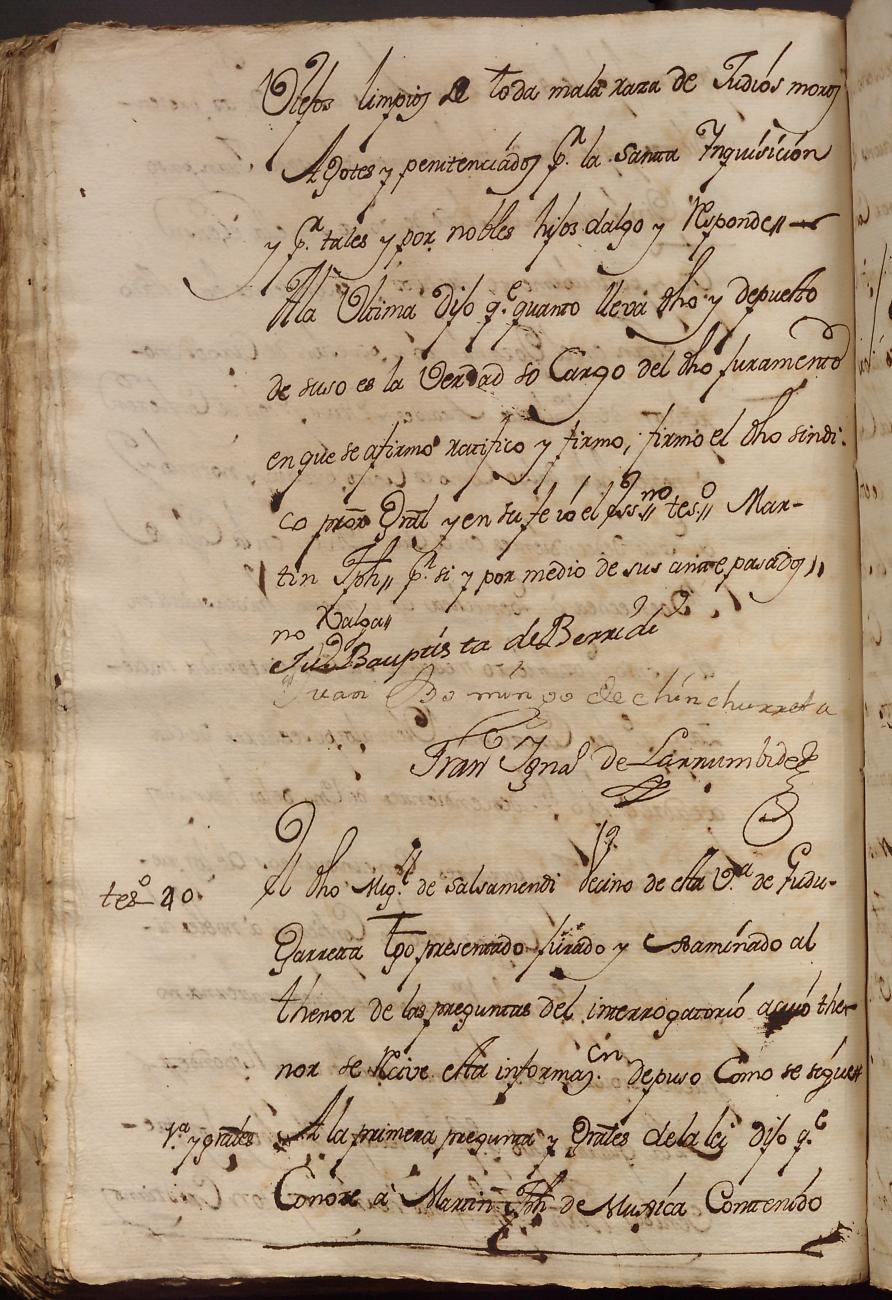 Viejos limpios de toda mala raza de Judios moros
Agotes y penitenciados pr. la santa Ynquisición
y pr. tales y por nobles hijos dalgo y responde//
A la Vltima dijo q.e quanto lleva dho y depuesto
de suso es la Verdad so Cargo del dho juramento
en que se afirmo ratifico y firmo, firmo el dho sindi-
co pror. Gral y en su fe ió el Ess.no tes.o// Mar-
tin Jph// pr. si y por medio de sus ante pasados//
no Valga//
Jua Bauptista de Berridi
Juan Domingo de chinchurreta
Fran Ygnaº de Larrumbide
tesº 20
El dho Mig.l de salsamendi Vecino de esta V.a de Gudu-
garreta tgo presentado jurado y examinado al
thenor de las preguntas del interrogatorió acuió the-
nor se recive esta informaz.cin depuso Como se sigue//
1.a y grales
A la primera pregunta y Grales dela lei dijo q.e
Conoze a Martin Jph de Muxica Contenido